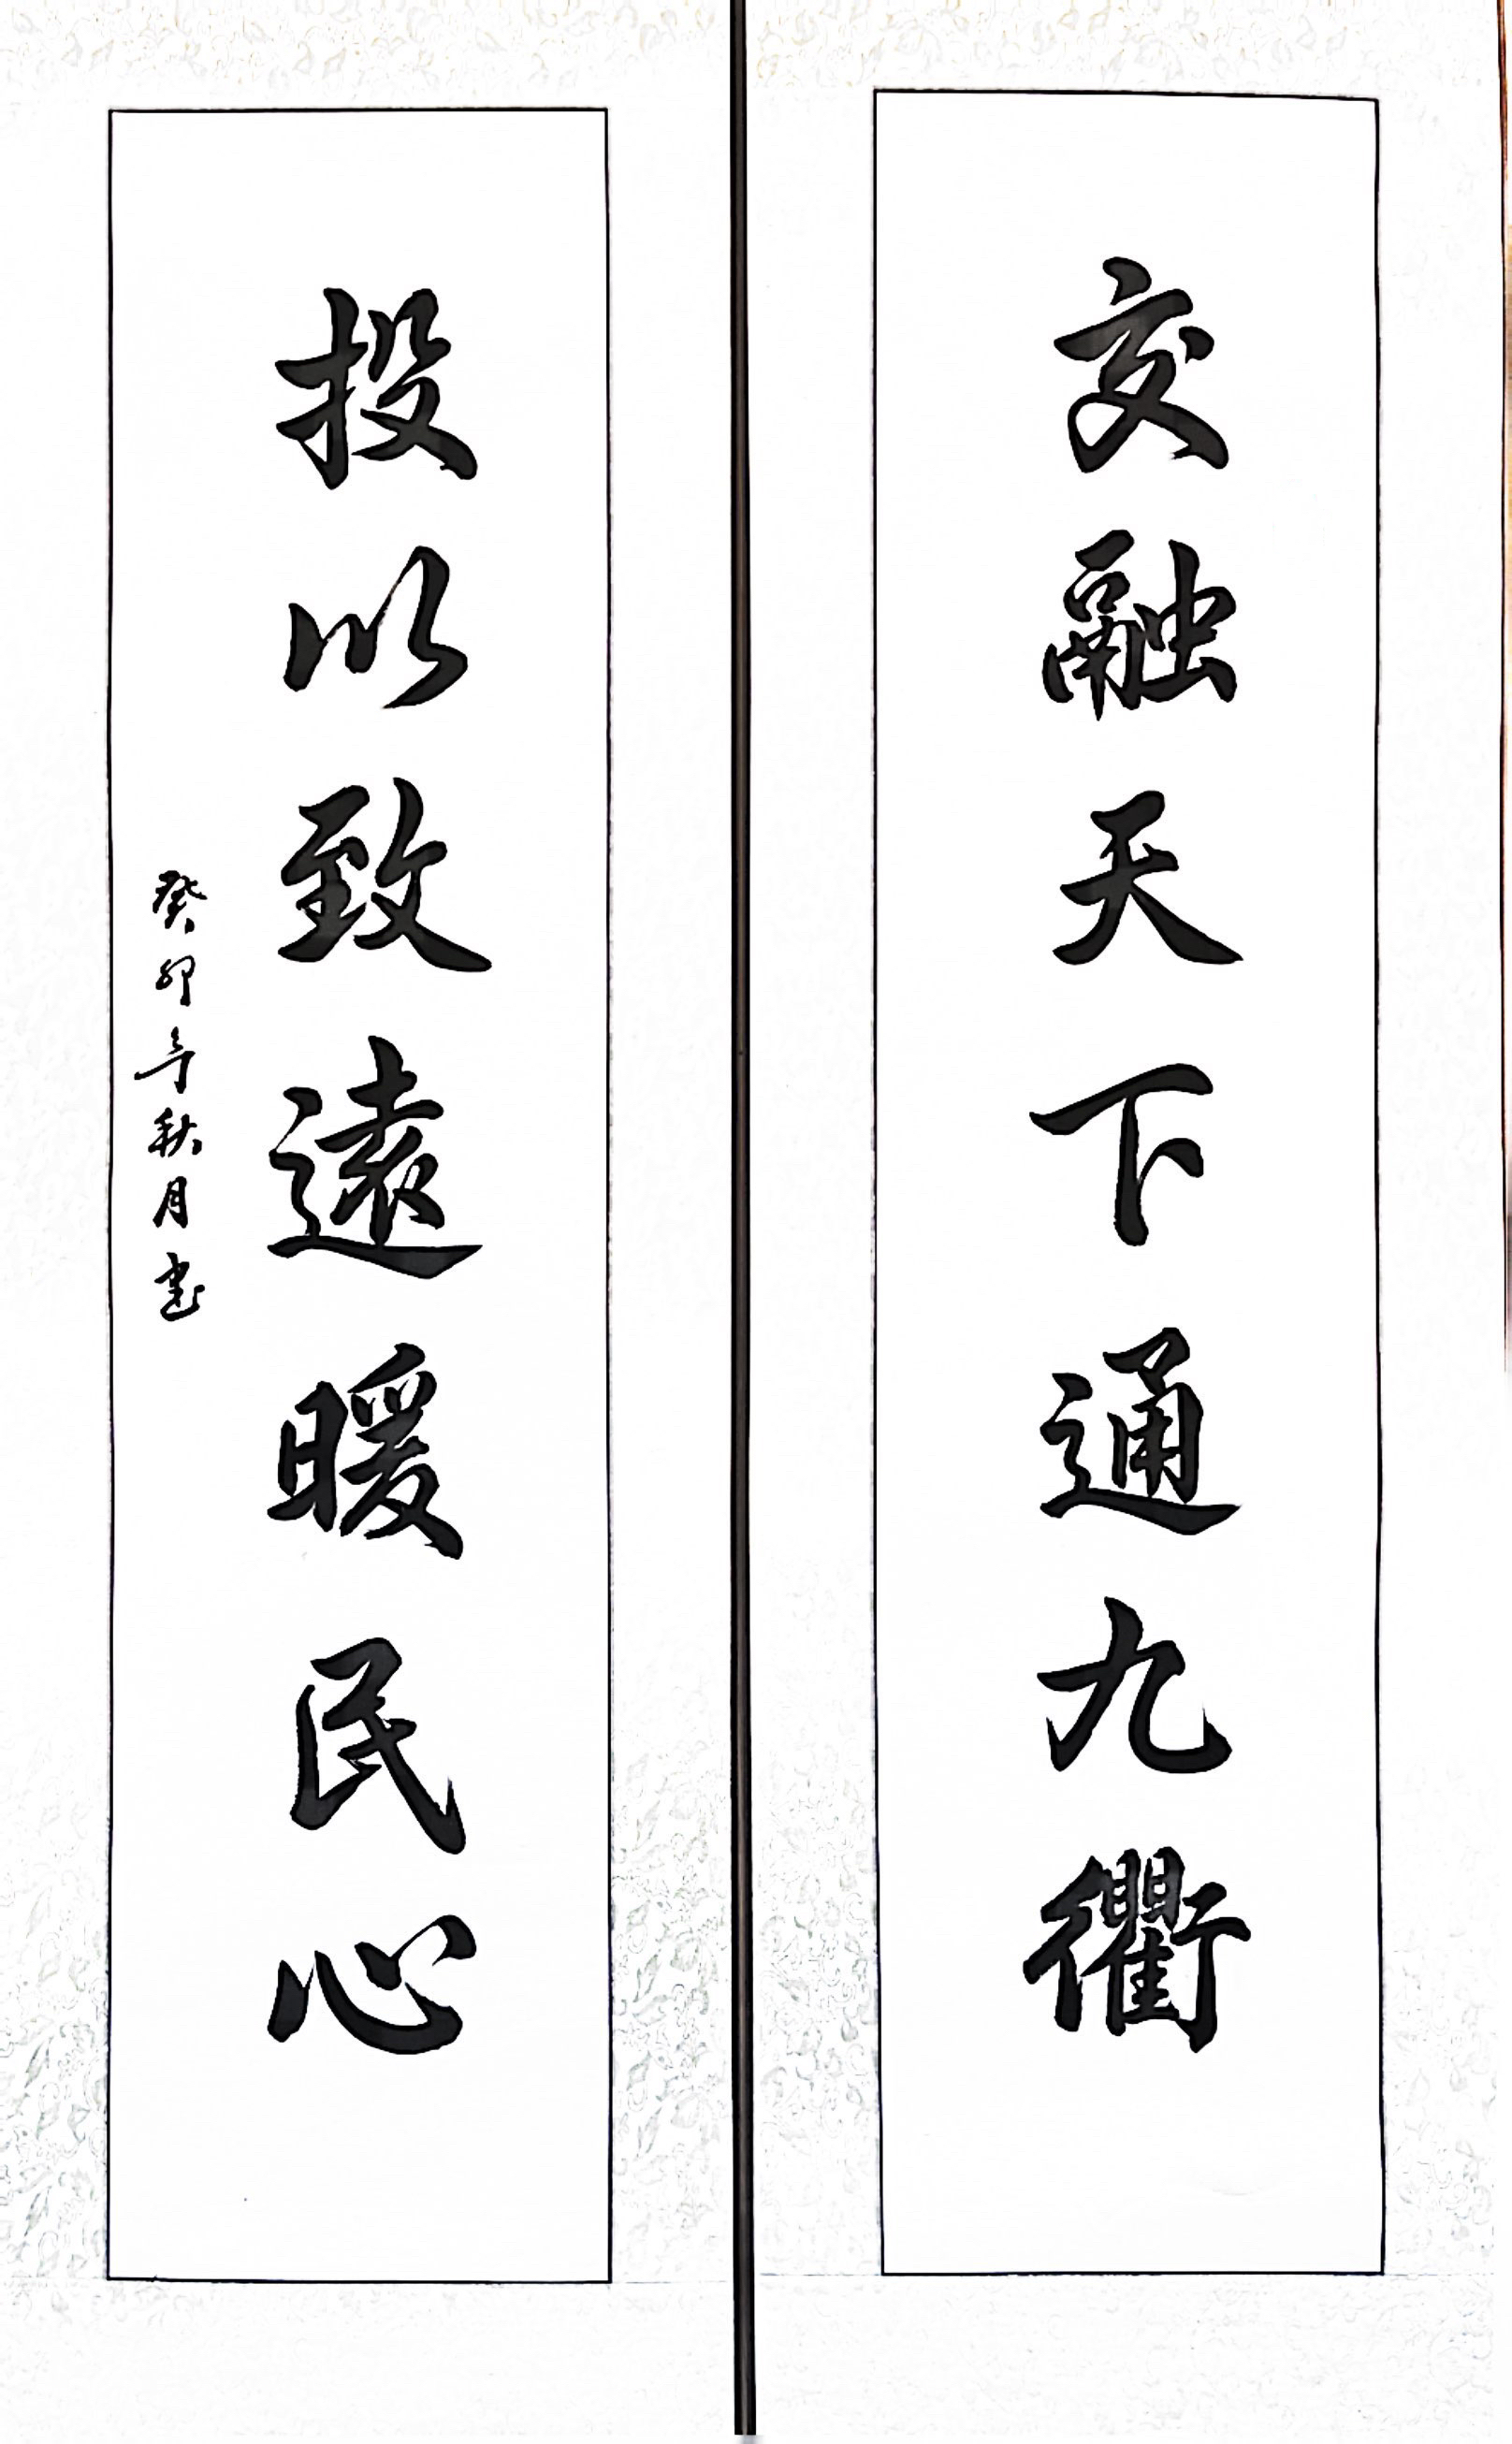 交融天下通九衢
投以致遠暖民心
癸卯年秋月书